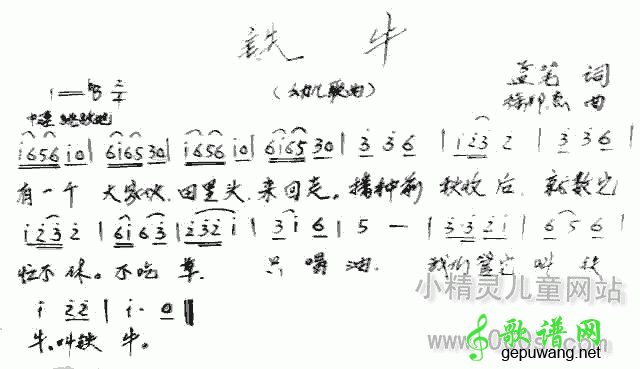 铁 牛
(幼儿歌曲)
1=♭B 2/4
词
曲
中速
i656 i0 | 6i65 30 | i656 i0 | 6i65 30 | 3 36 | i23 2 | 3 36 |
有一个 大家伙，田里头，来回走。播种前 秋收后，就数它
i23 2 | 6i 63 | 232 i | 3 i 6 | 5 — | 3·3 2i | 6 5 6 |
忙不休。不吃草，只喝油，我们管它叫铁
i 22 | i· 0 ‖
牛，叫铁 牛。
小精灵儿童网站
歌谱网
gepuwang.net